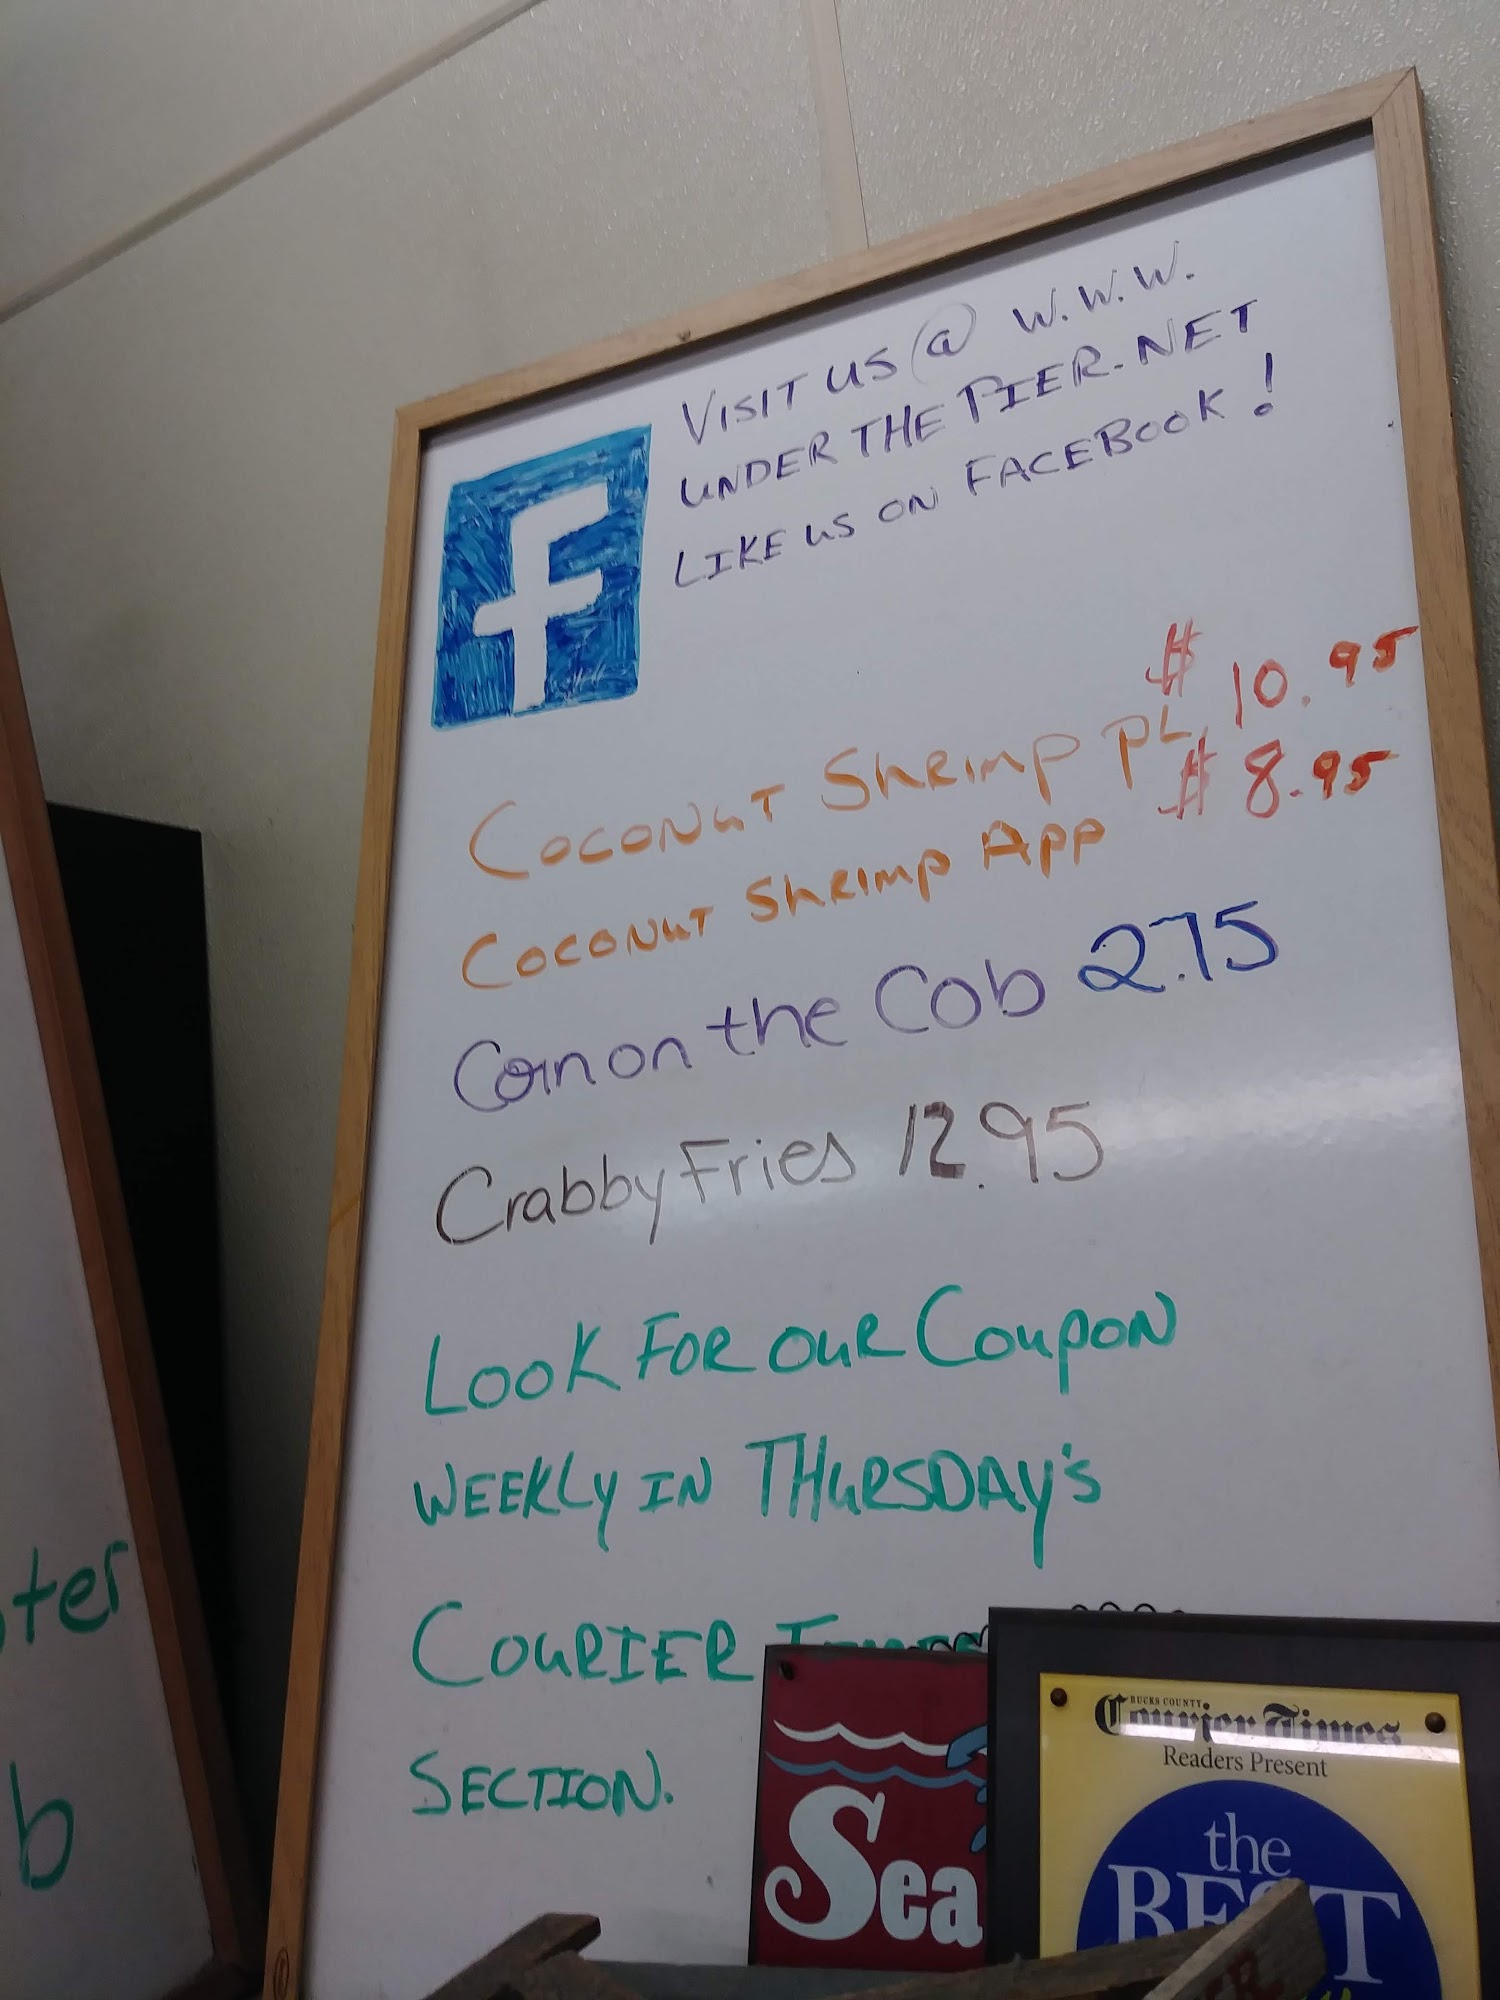 VISIT US @ W.W.W.
UNDER THE PIER.NET
LIKE US ON FACEBOOK!
f
COCONUT ShRImp PL. $10.95
COCONUT ShRImp App $8.95
Corn on the Cob 2.75
Crabby Fries 12.95
LOOK FOR OUR COUPON
WEEKLY IN THURSDAY'S
COURIER TIMES
SECTION.
ter
b
Sea
BUCKS COUNTY
Courier Times
Readers Present
the
BEST